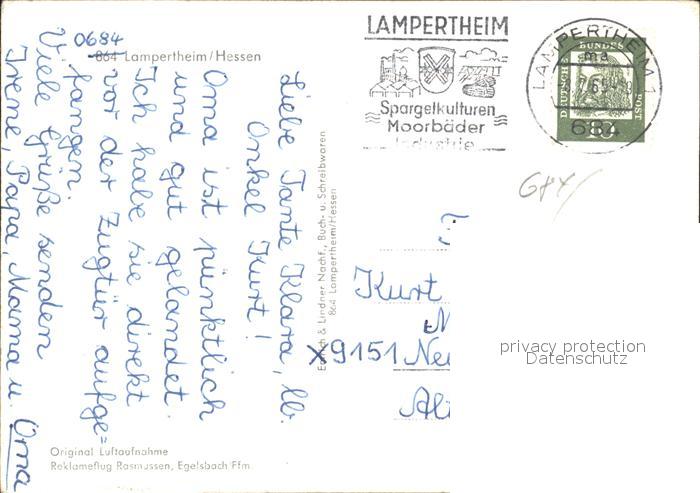 0684
864 Lampertheim/Hessen
Liebe Tante Klara, lb.
Onkel Kurt!
Oma ist pünktlich
und gut gelandet.
Ich habe sie direkt
vor der Zugtür aufge=
fangen.
Viele Grüße senden
Irene, Papa, Mama u. Oma
Original Luftaufnahme
Reklameflug Rasmussen, Egelsbach Ffm.
& Lindner Nachf., Buch- u. Schreibwaren
864 Lampertheim/Hessen
LAMPERTHEIM
Spargelkulturen
Moorbäder
Industrie
LAMPERTHEIM 1
ma
684
DEUTSCHE BUNDESPOST
10
684
Kurt
X9151 Neu
privacy protection
Datenschutz